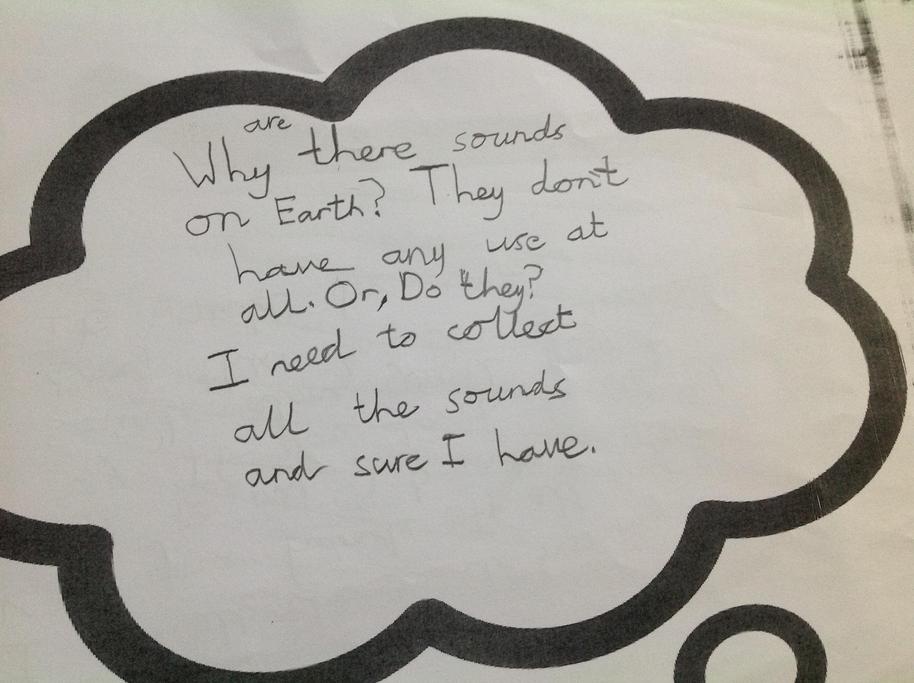 are
Why there sounds
on Earth? They don't
have any use at
all. Or, Do they?
I need to collect
all the sounds
and sure I have.